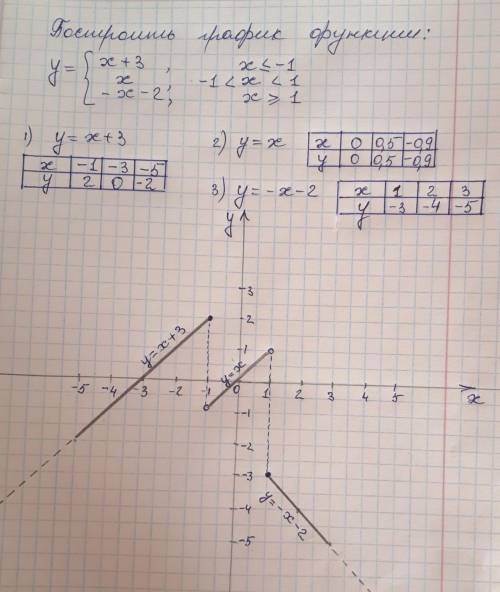 Построить график функции:
y = { x + 3 , x ≤ -1
x -1 < x < 1
- x - 2 ; x ⩾ 1
1) y = x + 3
x -1 -3 -5
y 2 0 -2
2) y = x
x 0 0,5 -0,9
y 0 0,5 -0,9
3) y = - x - 2
x 1 2 3
y -3 -4 -5
y
3
2
1
y = x + 3
y = x
-5 -4 -3 -2 -1 0 1 2 3 4 5
x
-1
-2
-3
-4
-5
y = - x - 2